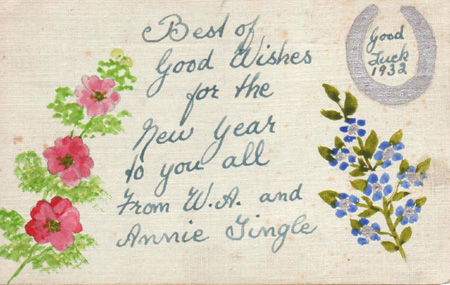 Best of
Good Wishes
for the
New Year
to you all
From W.A. and
Annie Tingle
Good
Luck
1932